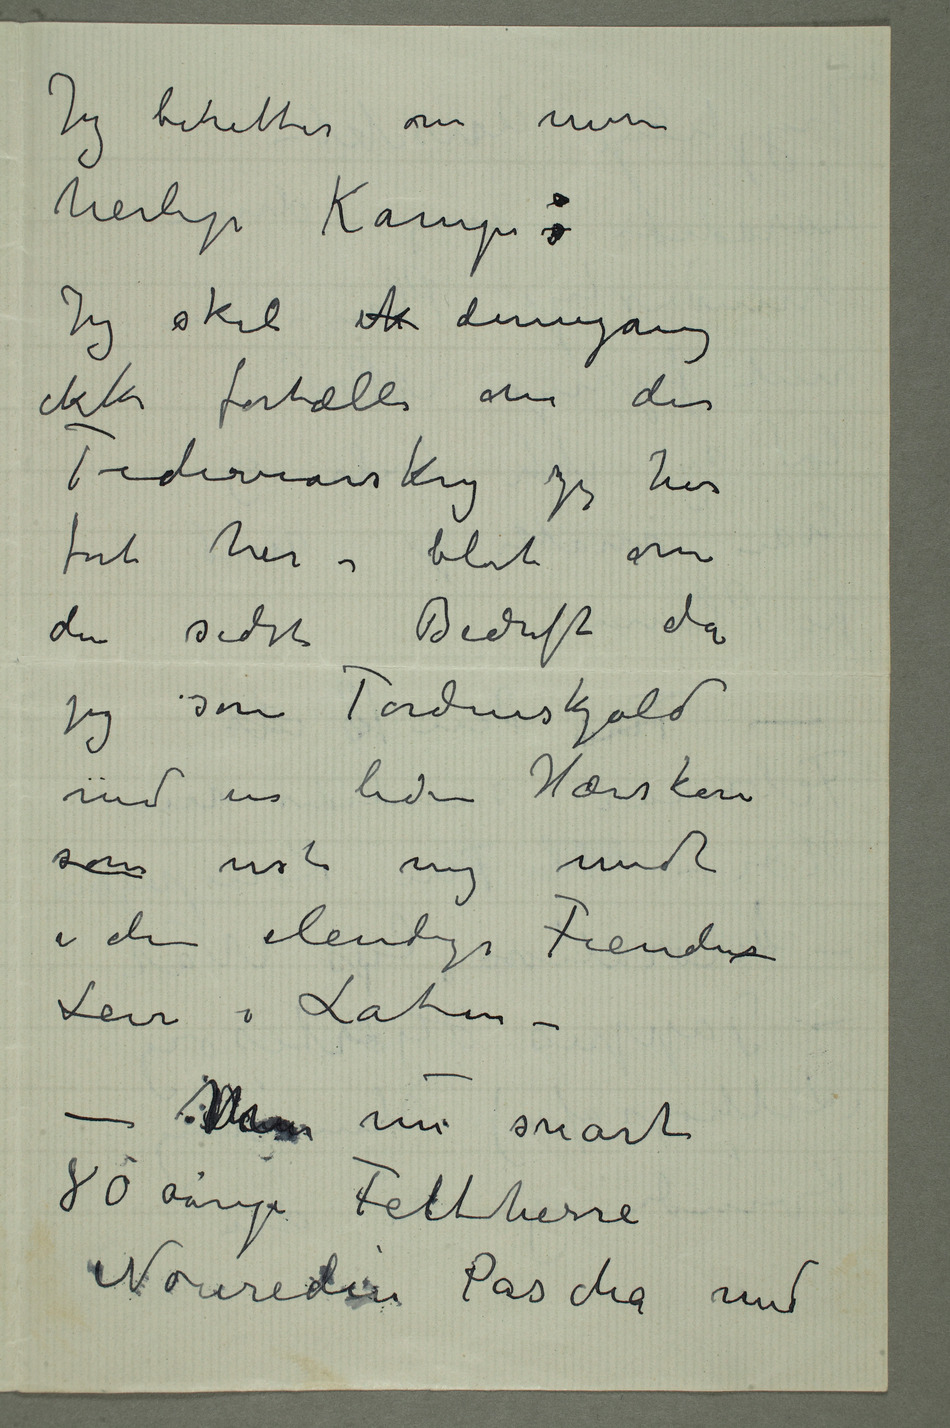 Jeg beretter om mine
herlige Kampe:
Jeg skal ik dennegang
ikke fortælle om den
Trediveaarskrig jeg har
ført her – blot om
den sidste Bedrift da
jeg som Tordenskjold
med en liden Hærskare
som vist mig midt
i den elendige Fiendes
Leir i Laten –
— Min nu snart
80 aarige Feltherre
Nouredin Pascha med